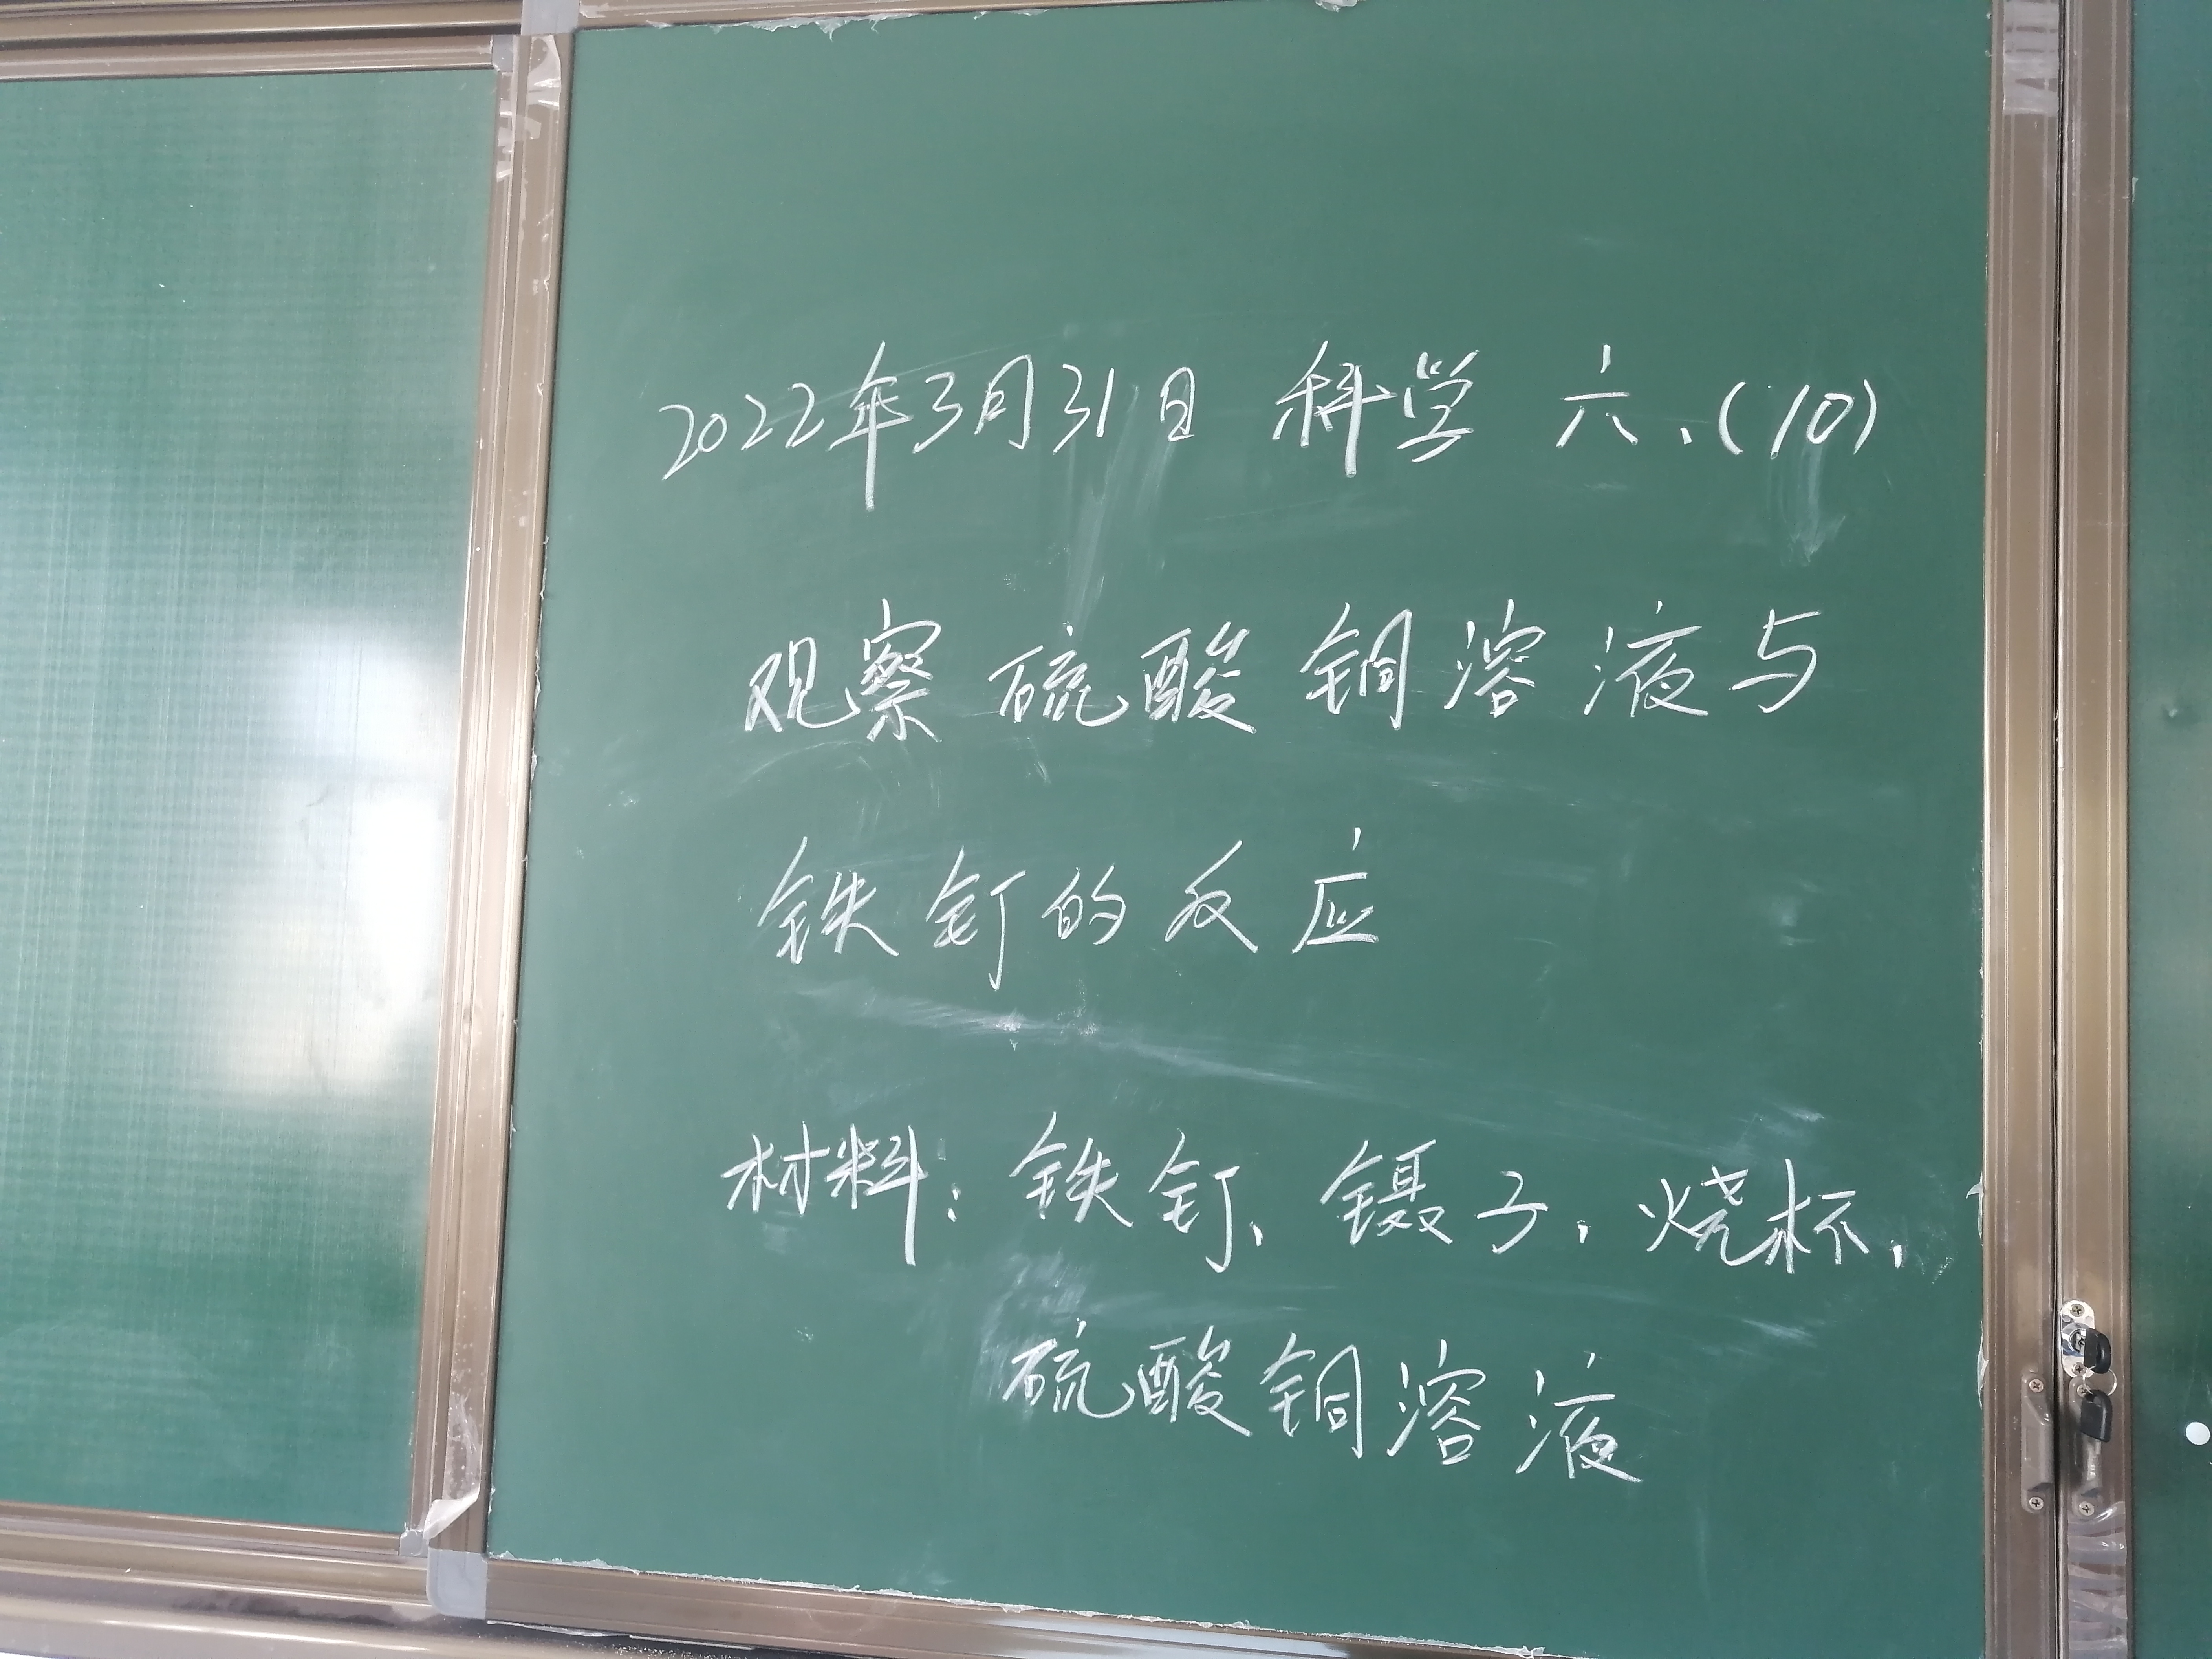 2022年3月31日 科学 六、(10)
观察硫酸铜溶液与
铁钉的反应
材料：铁钉、镊子、烧杯、
硫酸铜溶液